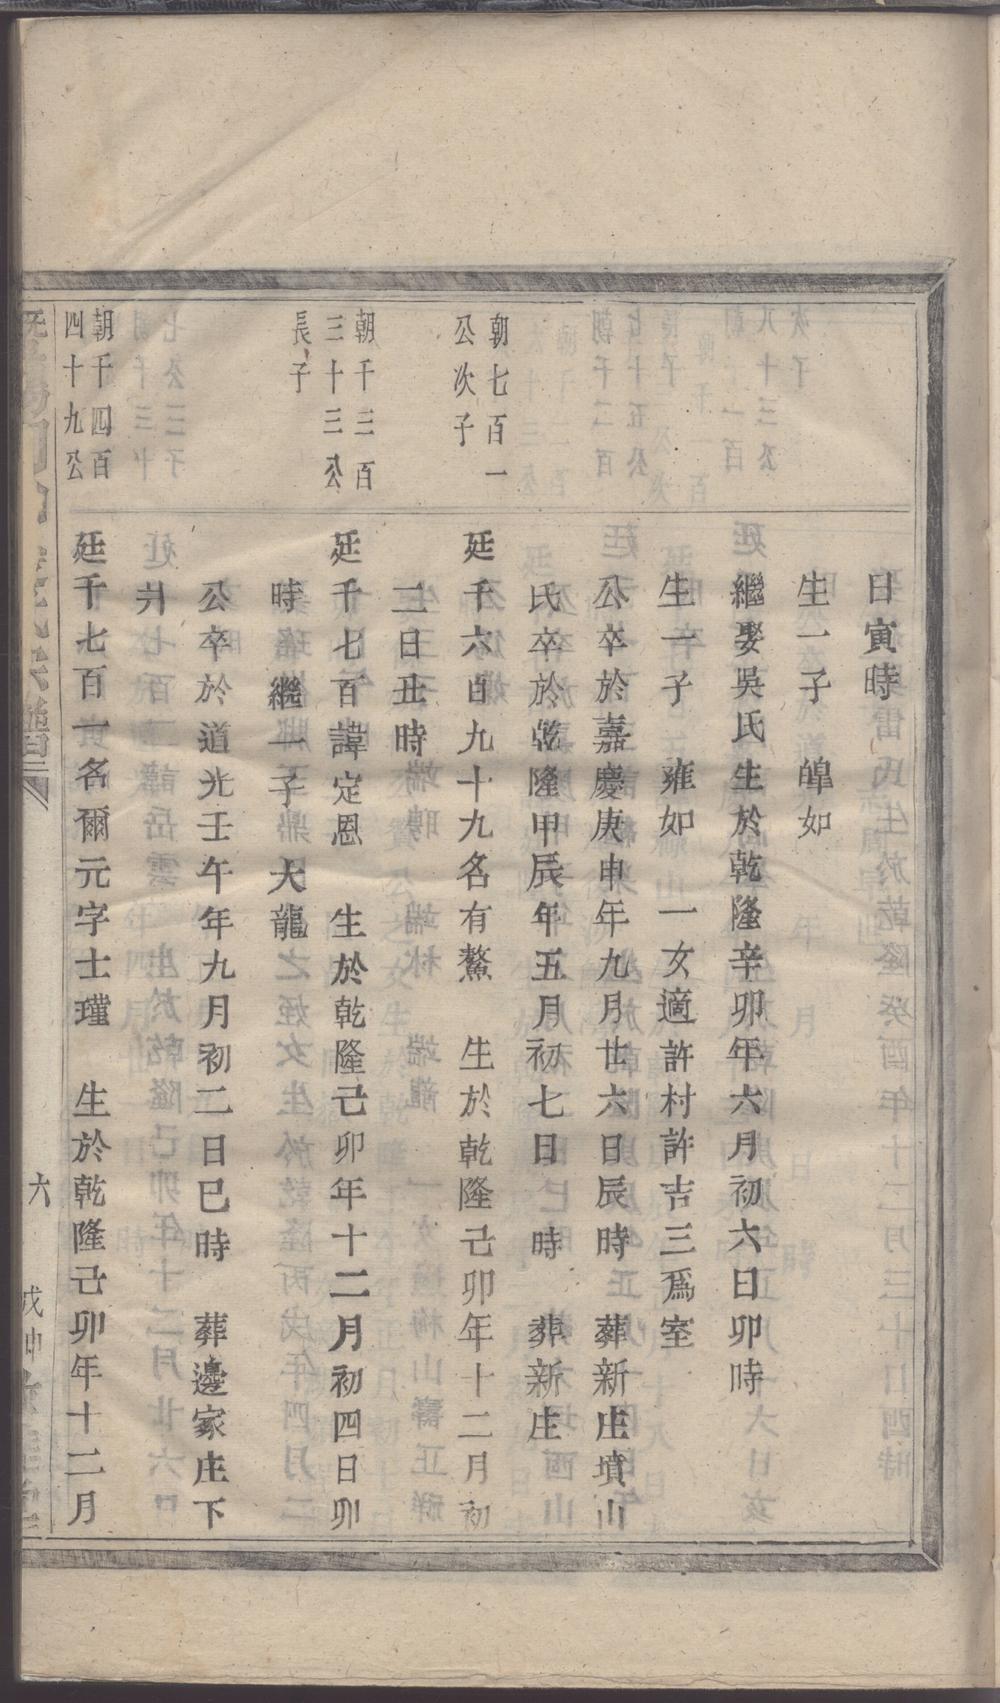 日寅時
生一子　皥如
繼娶吳氏生於乾隆辛卯年六月初六日卯時
生一子　雍如　一女適許村許吉三爲室
公卒於嘉慶庚申年九月廿六日辰時　葬新庄墳山
氏卒於乾隆甲辰年五月初七日　時　葬新庄
朝七百一
公次子
廷千六百九十九名有鰲　生於乾隆己卯年十二月初
二日丑時
朝千三百
三十三公
長子
廷千七百諱定恩　生於乾隆己卯年十二月初四日卯
時　繼一子　大龍
公卒於道光壬午年九月初二日巳時　葬邊家庄下
井
朝千四百
四十九公
廷千七百一名爾元字士瑾　生於乾隆己卯年十二月
六